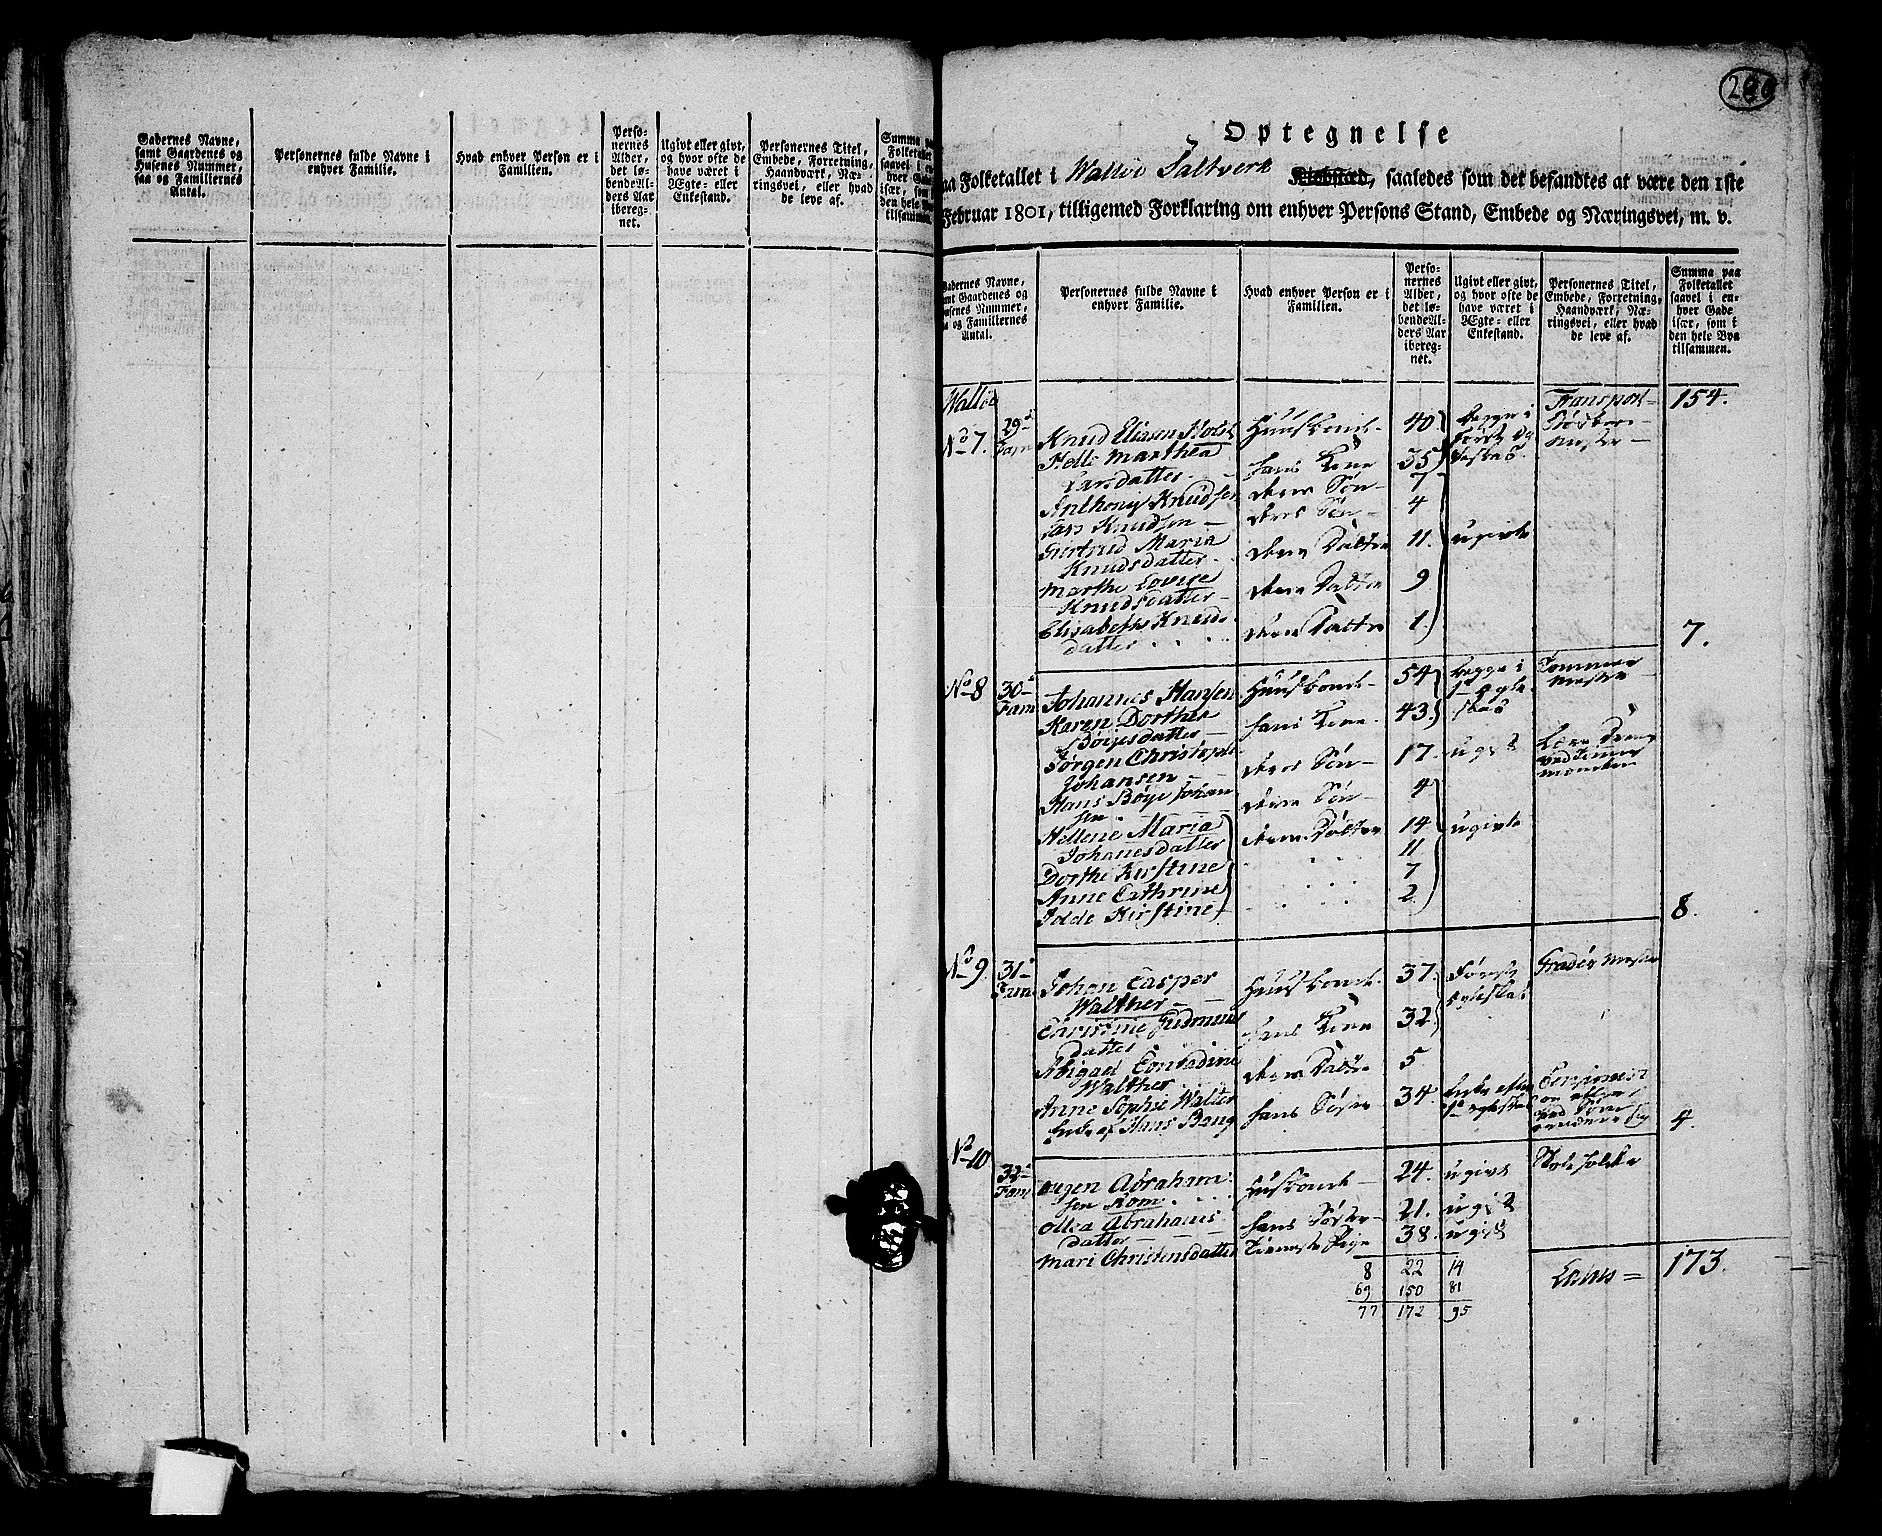 Gadernes Navne,
samt Gaardenes og
Husenes Nummer,
saa og Familiernes
Antal.
Personernes fulde Navne i
enhver Familie.
Hvad enhver Person er i
Familien.
Perso-
nernes
Alder,
det lø-
bende Al-
ders Aar
iberegnet.
Ugivt eller givt,
og hvor ofte de
have været i
Ægte- eller
Enkestand.
Personernes Titel,
Embede, Forretning,
Haandværk, Næ-
ringsvej, eller hvad
de leve af.
Summa paa
Folketallet
saavel i en-
hver Gade
især, som i
den hele By
tilsammen.
Optegnelse
paa Folketallet i Walløe Saltverk Kiøbstæd, saaledes som det befandtes at være den 1ste
Februar 1801, tilligemed Forklaring om enhver Persons Stand, Embede og Næringsvei, m. v.
Gadernes Navne,
samt Gaardenes og
Husenes Nummer,
saa og Familiernes
Antal.
Personernes fulde Navne i
enhver Familie.
Hvad enhver Person er i
Familien.
Perso-
nernes
Alder,
det lø-
bende Al-
ders Aar
iberegnet.
Ugivt eller givt,
og hvor ofte de
have været i
Ægte- eller
Enkestand.
Personernes Titel,
Embede, Forretning,
Haandværk, Næ-
ringsvei, eller hvad
de leve af.
Summa paa
Folketallet
saavel i en-
hver Gade
især, som i
den hele By
tilsammen.
Walløe Transport 154.
No 7. 29de Fam Knud Elissen Holst Huusbonde 40 begge i første Ægteskab
Helle Marthea hans Kone 35
Larsdatter
Anthoniy Knudsen deres Søn 7
Lars Knudsen deres Søn 4
Giertrud Maria deres Datter 11. ugivte
Knudsdatter
Marthe Lovice deres Datter 9
Knudsdatter
Elisabeth Knuds deres Datter 1
datter 7.
No 8 30de Fam Johannes Hansen Huusbonde 54 begge i 1te Ægteskab Tømmer Mester
Karen Dorthea hans Kone 43
Böijesdatter
Jørgen Christoph deres Søn 17. ugivt Lære Dreng ved Tømmer
Johansen
Hans Böije Johan deres Søn 4
sen
Hellene Maria deres Døttre 14 ugivte
Johanesdatter 11
Dorthe Kirstine 7
Anne Cathrine 2
Idde Kirstine 8.
No 9. 31te Fam Johan Casper Huusbonde 37 Første Ægteskab Gradeer Mester
Walther
Christine Gudmund hans Kone 32
datter
Abigael Conradine deres Datter 5
Walther
Anne Sophie Walter hans Søster 34 Enke efter 1te Ægteskab
Enke af Hans Bang 4
No 10 32te Fam Jørgen Abraham Huusbonde 24. ugivt
sen Rom
Ollea Abrahams hans Søster 21. ugivt
datter
Mari Christensdatter Tieneste Pige 38 ugivt
8 22 14 Latus = 173.
69 150 81
77 172 95